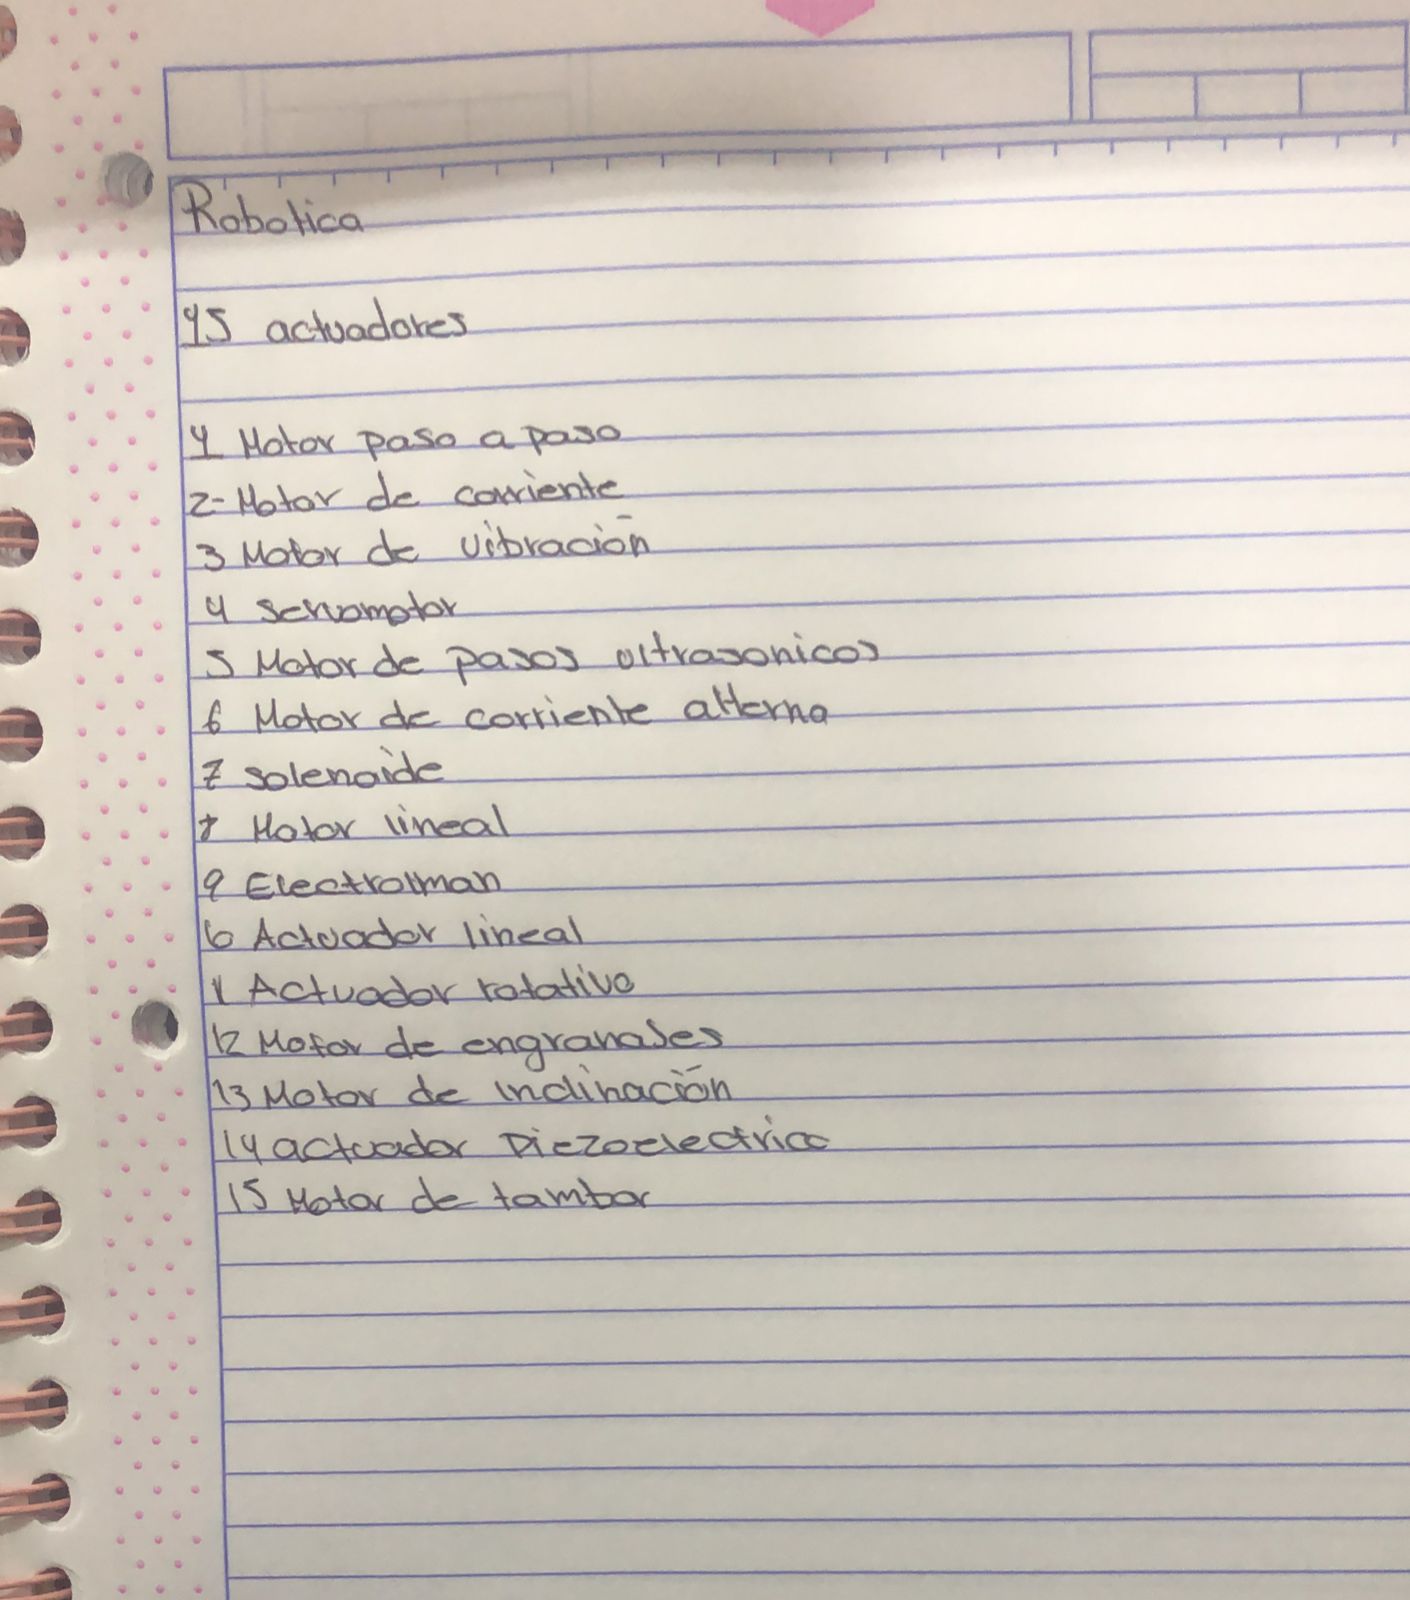 Robotica
15 actuadores
1 Motor paso a paso
2- Motor de corriente
3 Motor de vibración
4 Servomotor
5 Motor de pasos ultrasonicos
6 Motor de corriente alterna
7 solenoide
8 Motor lineal
9 Electroiman
10 Actuador lineal
11 Actuador rotativo
12 Motor de engranajes
13 Motor de inclinación
14 actuador piezoelectrico
15 Motor de tambor